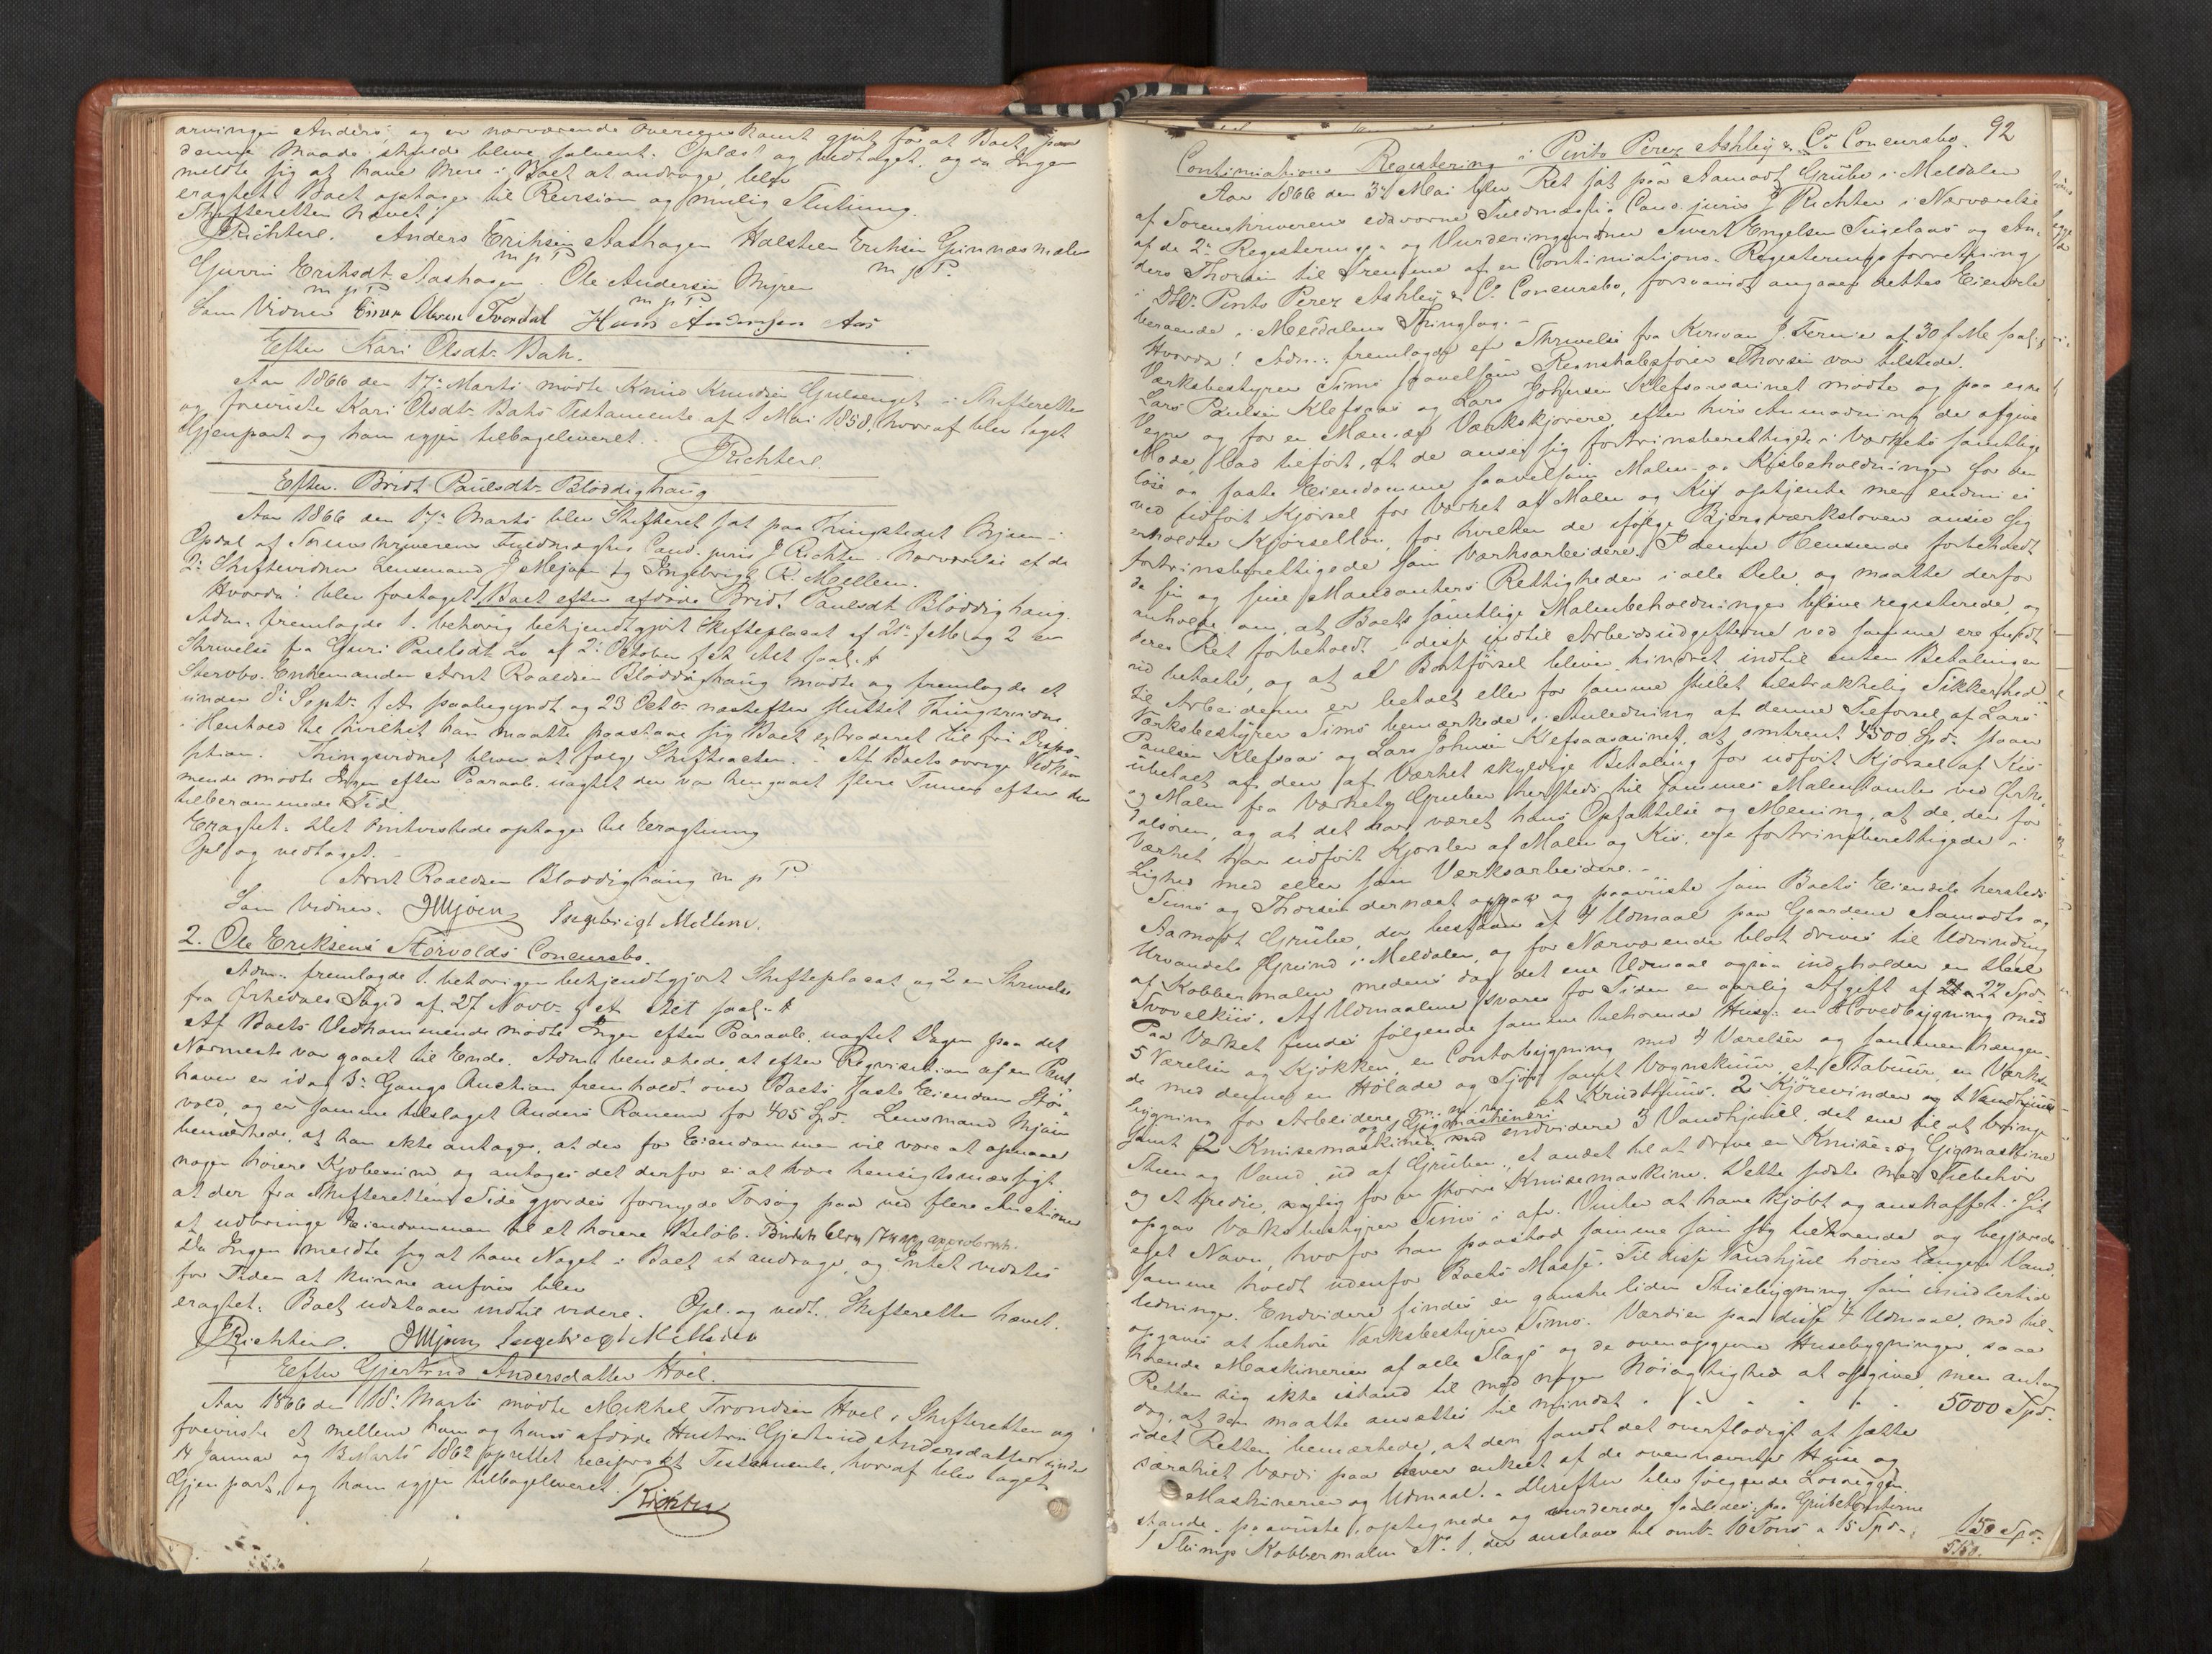 arvingen Anders, og en nærværende Overenskomst gjort for at Boet paa
denne Maade skulde blive solvent. Oplæst og vedtaget, og da Ingen
meldte sig at have Mere i Boet at andrage, blev
eragtet: Boet optages til Revision og mulig Slutning.
Skifteretten hævet.
JRichter. Anders Eriksen Aashagen Halsteen Eriksen Grinnæsmælen
m p P m p P.
Gurrie Eriksdt Aashagen. Ole Andersen Myren
m p P m p P
Som Vidner Einer Olsen Tverdal Hans Andersen Aas
Efter Kari Olsdtr Bak.
Aar 1866 den 17de Marts mødte Knud Knudsen Gulsenget i Skifteretten
og foreviste Kari Olsdtr Baks Testamente af 1 Mai 1858, hvoraf blev taget
Gjenpart og ham igjen tilbageleveret.
JRichter.
Efter Bridt Paulsdtr Bløddighaug
Aar 1866 den 17de Marts blev Skifteret sat paa Thingstedet Mjøen i
Opdal af Sorenskriverens Fuldmægtig Cand. juris J Richter i Nærværelse af de
2de Skiftevidner Lensmand J Mjøen og Ingebrigt R. Mellem.
Hvorda: blev foretaget Boet efter afdøde Bridt Paulsdt Bløddighaug.
Adm. fremlagde 1. behørig bekjendtgjort Skifteplacat af 21de f Md og 2 en
Skrivelse fra Guri Paulsdt Lo af 2de October f At Alt saal.
Stervbo Enkemanden Arnt Roaldsen Bløddighaug mødte og fremlagde et
under 8de Septbr f At paabegyndt og 23 Octbr næstefter sluttet Thingsvidne
i Henhold til hvilket han maatte paastaae sig Boet extraderet til fri Dispo-
sition. Thingsvidnet bliver at følge Skifteacten. Af Boets øvrige Vedkom-
mende mødte Ingen efter Paaraab uagtet der var hengaaet flere Timer efter den
tilberammede Tid.
Eragtet: Det Passerede optages til Eragtning
Opl og vedtaget.
Arnt Roaldsen Bløddighaug m p P.
Som Vidner. JMjøen Ingebrigt Mellem.
2. Ole Eriksens Størvolds Concursbo.
Adm. fremlagde 1. behørigen bekjendtgjort Skifteplacat og 2 en Skrivelse
fra Ørkedals Fogid af 27 Novbr f At Alt saal.
Af Boets Vedkommende mødte Ingen efter Paaraab, uagtet Dagen paa det
Nærmeste var gaaet til Ende. Adm. bemærkede, at efter Reqvisition af en Pant-
haver er idag 3die Gangs Auction fremholdt over Boets faste Eiendom Stør-
vold, og er samme tilslaget Anders Ranem for 405 Spd. Lensmand Mjøen
bemærkede, at han ikke antager, at der for Eiendommen vil være at opnaae
nogen høiere Kjøbesum, og antages det derfor ei at være hensigtsmæssigt
at der fra Skifterettens Side gjordes fornyede Forsøg paa ved flere Auctioner
at udbringe Eiendommen til et høiere Beløb. Budet blev approberet.
Da Ingen meldte sig at have Noget i Boet at andrage, og Intet vidstes
for Tiden at kunne anføres blev
eragtet: Boet udstaaer indtil videre. Opl. og vedt. Skifteretten hævet.
JRichter. JMjøen Ingebrigt Mellem
Efter Gjertrud Andersdatter Hoel.
Aar 1866 den 18de Marts mødte Mikkel Trondsen Hoel i Skifteretten og
foreviste et mellem ham og hans afdøde Hustru Gjertrud Andersdatter under
14 Januar og 13 Marts 1862 oprettet reciprokt Testamente, hvoraf blev taget
Gjenpart, og ham igjen tilbageleveret. Richter
92
Continuations Registering i Pinto Perez Ashley & Co Concursbo.
Aar 1866 den 3die Mai blev Ret sat paa Aamodt Grube i Meldalen
af Sorenskriverens edsvorne Fuldmægtig Cand. juris J Richter i Nærværelse
af de 2de Registerings- og Vurderingsvidner Sivert Engelsen Singelaas og An-
ders Thorsen til Fremme af en Continuations-Registeringsforretning
i DHr Pinto Perez Ashley & Co Concursbo, forsaavidt angaaer dettes Eiendele
beroende i Meldalens Thinglag.
Hvorda! Adm. fremlagde en Skrivelse fra Kirwan J. Fernie af 30 f Md saal.
Værksbestyrer Sims saavelsom Regnskabsfører Thorsen var tilstede.
Lars Paulsen Klefsaas og Lars Johnsen Klefsaasaunet mødte og paa egne
Vegne og for en Mængde Værkskjørere, efter hvis Anmodning de afgive
Møde, bad tilført, at de anser sig fortrinsberettigede i Værkets samtlige
løse og faste Eiendomme saavelsom Malm- og Kisbeholdninger for den
ved udført Kjørsel for Værket af Malm og Kis optjente men endnu ei
erholdte Kjørselløn, for hvilken de ifølge Bjergværksloven ansee sig
fortrinsberettigede som Værksarbeidere. I denne Henseende forbeholdt
de sin og sine Mandanters Rettigheder i alle Dele, og maatte derfor
anholde om, at Boets samtlige Malmbeholdninger bleve registerede, og
deres Ret forbeholdt i disse indtil Arbeidsudgifterne ved samme ere fuldt
ud betalte, og at al Bortførsel bliver hindret indtil enten Betalingen
til Arbeiderne er betalt eller for samme stillet tilstrækkelig Sikkerhed.
Værksbestyrer Sims bemærkede i Anledning af denne Tilførsel af Lars
Paulsen Klefsaas og Lars Johnsen Klefsaasaunet, at omtrent 4500 Spd. staaer
ubetalt af den af Værket skyldige Betaling for udført Kjørsel af Kis
og Malm fra Værkets Gruber hersteds til sammes Malmtomter ved Ørke-
dalsøren, og at det har været hans Opfattelse og Mening, at de, der for
Værket har udført Kjørsler af Malm og Kis, ere fortrinsberettigede i
Lighed med eller som Værksarbeidere.
Sims og Thorsen dernæst opgav og paaviiste som Boets Eiendele hersteds
Aamodt Grube, der bestaaer af 4 Udmaal paa Gaardene Aamodts og
Urvandets Grund i Meldalen, og for Nærværende blot drives til Udvinding
af Kobbermalm medens dog det ene Udmaal ogsaa indeholder en Deel
Svovelkiis. Af Udmaalene svares for Tiden en aarlig Afgift af 22 Spd
Paa Værket findes følgende samme tilhørende Huse: en Hovedbygning med
5 Værelser og Kjøkken, en Contorbygning med 4 Værelser og sammenhængen-
de med denne en Hølade og Fjøs samt Vognskuur, et Stabuur, en Værks-
bygning for Arbeidere m. m. et Krudthuus. 2 Kjørevinder og 1 Vandpumpe
samt 2 Knusemaskiner og 1 Gigmaskineri endvidere 3 Vandhjuul, det ene til at bringe
Steen og Vand ud af Gruben, et andet til at drive en Knuse- og Gigmaskine
og et tredie, nylig for en større Knusemaskine. Dette sidste med Tilbehør
opgav Værksbestyrer Sims i afv. Vinter at have kjøbt og anskaffet i sit
eget Navn, hvorfor han paastod samme som sig tilhørende og begjærede
samme holdt udenfor Boets Masse. Til disse Vandhjul hører længere Vand-
ledninger. Endvidere findes en ganske liden Stuebygning, som imidlertid
opgaves at tilhøre Værksbestyrer Sims. Værdien paa disse 4 Udmaal, med til-
hørende Maskinerier af alle Slags og de ovenopgivne Husebygninger, saae
Retten sig ikke istand til med nogen Nøiagtighed at opgive, men antog
dog, at den maatte ansættes til mindst . . . . . 5000 Spd.
idet Retten bemærkede, at den fandt det overflødigt at sætte
særskilt Værdi paa hver enkelt af de ovennævnte Huse og
Maskinerier og Udmaal. Derefter blev følgende Løsøregjen-
stande paaviiste, optegnede og vurderede saaledes: paa Grubetomterne
1 Slump Kobbermalm No 1, der anslaaes til omtr. 10 Tons a 15 Spd. 150 Spd.
5150.